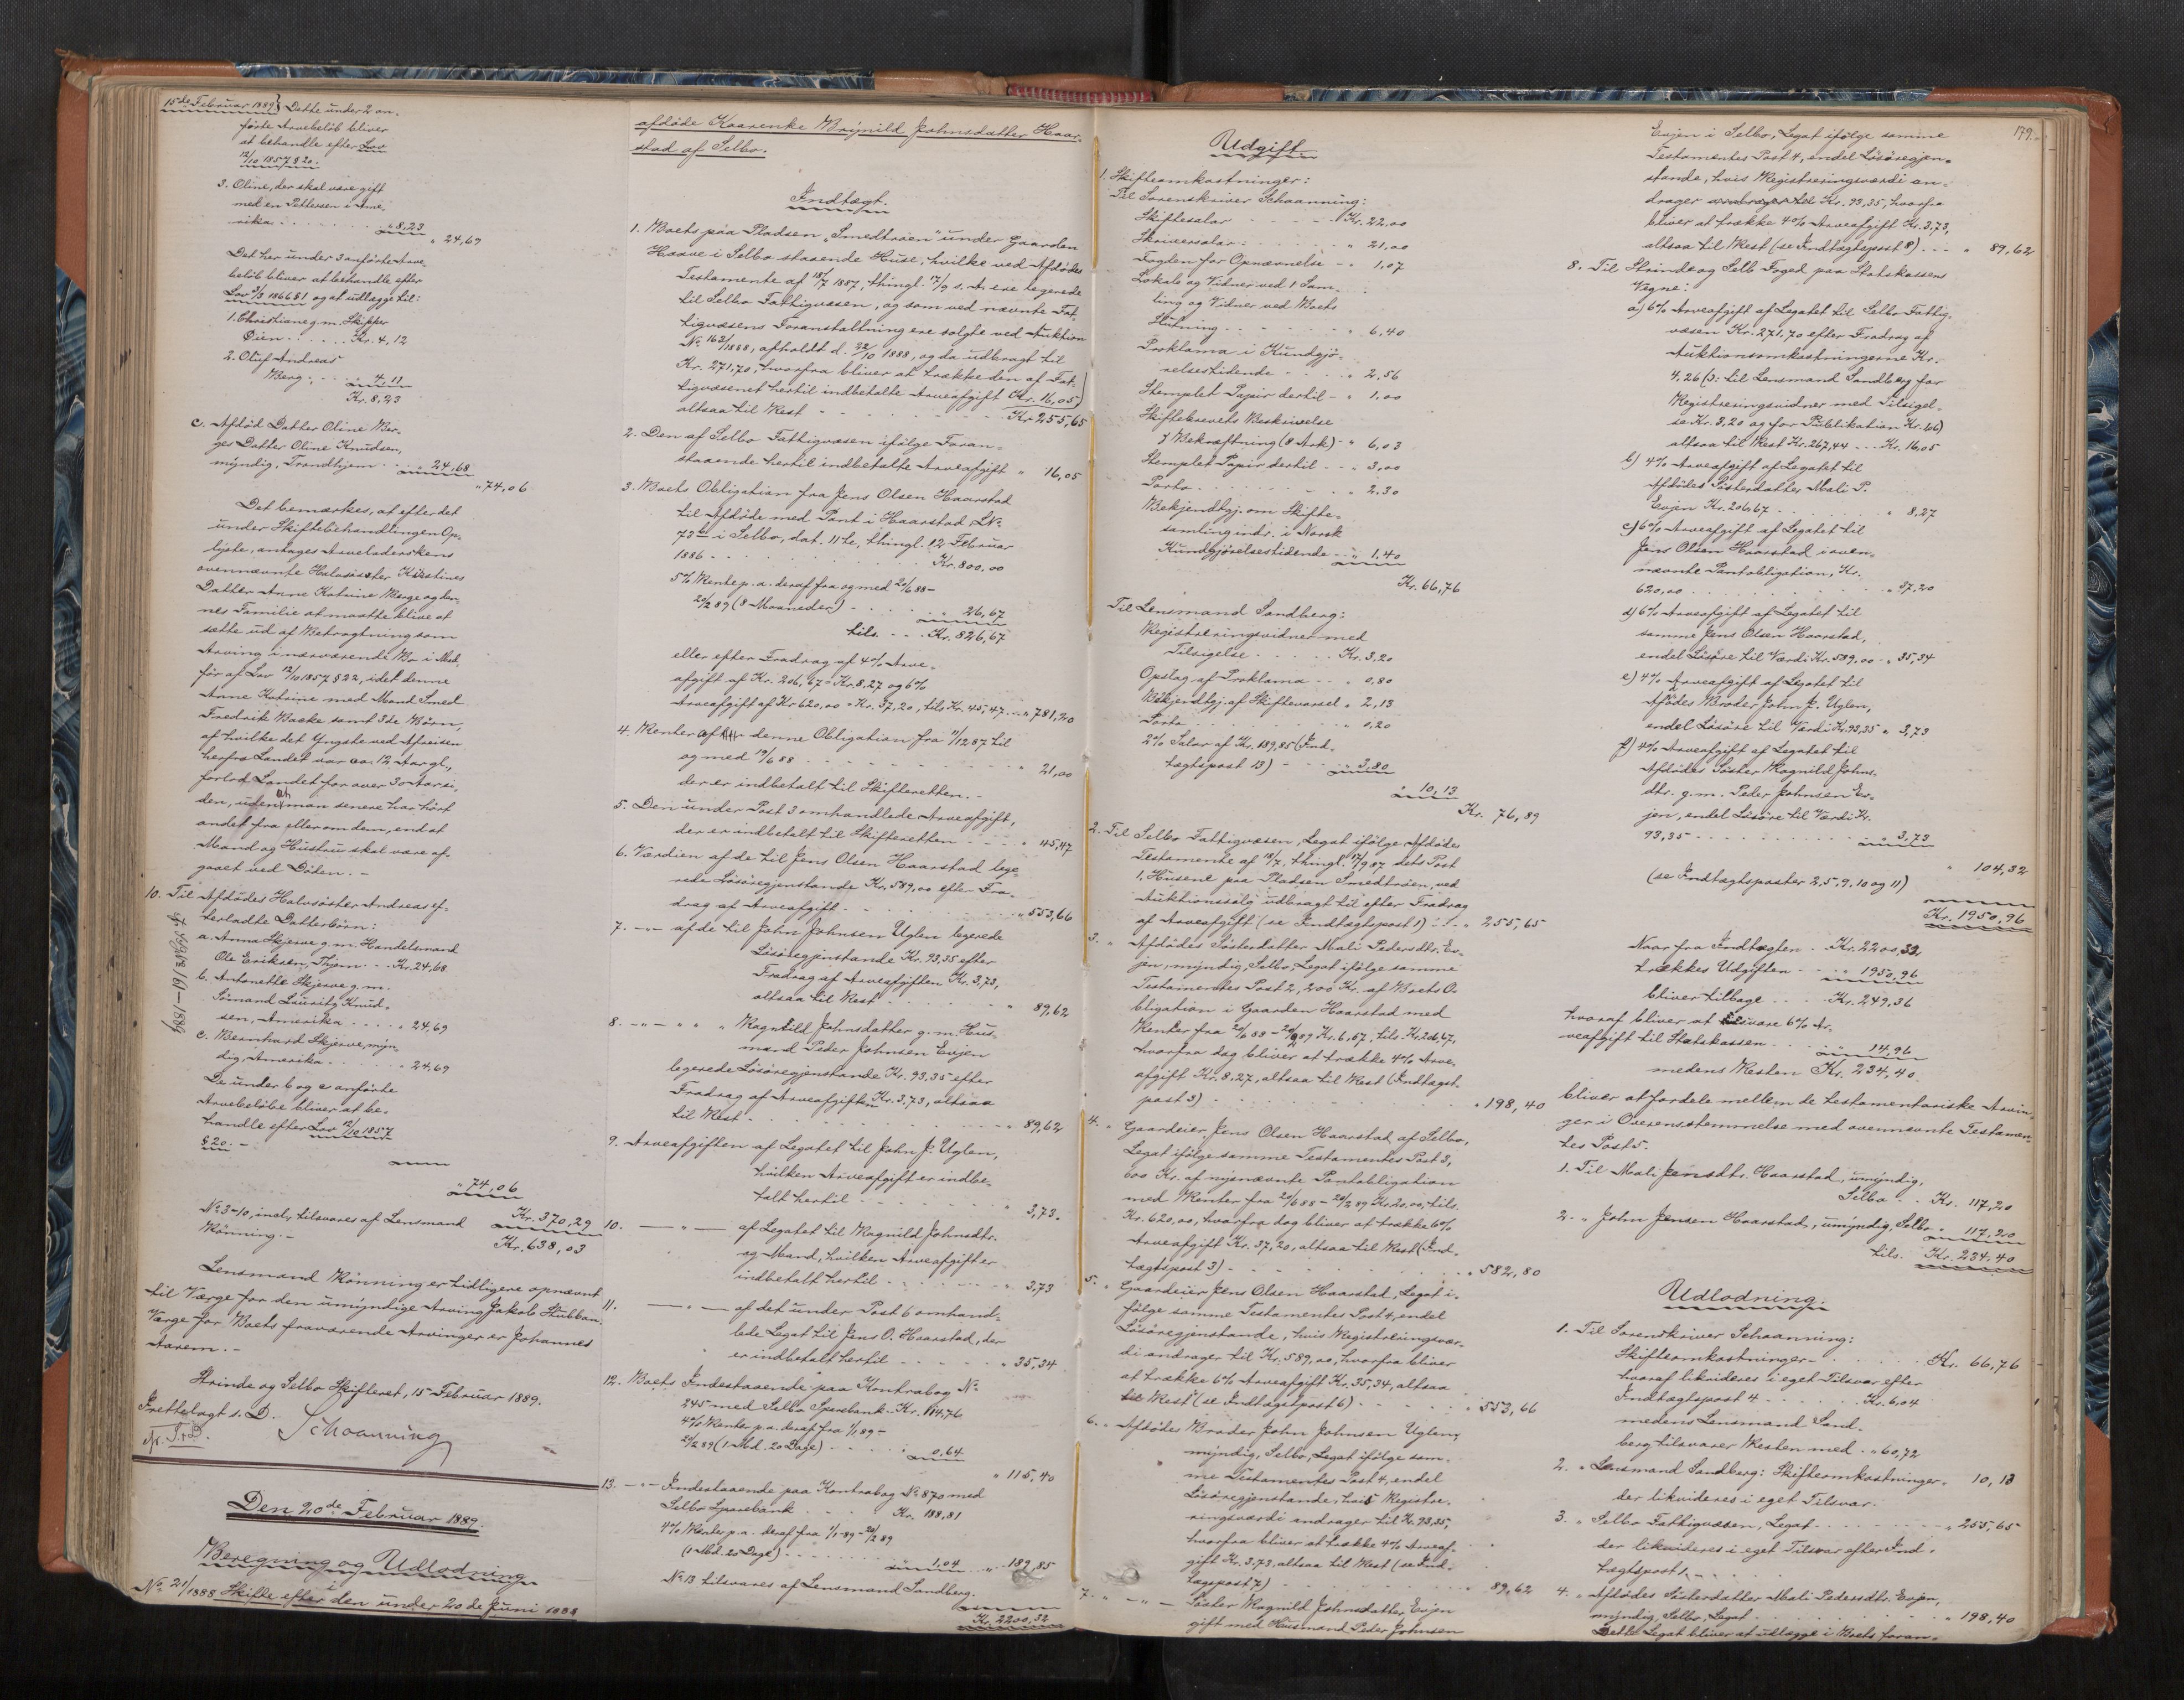 15de Februar 1889} Dette under 2 an-
førte Arvebeløb bliver
at behandle efter Lov
12/10 1857 § 20.
3. Oline, der skal være gift
med en Pettersen i Ame-
rika . . . . . . " 8,23
" 24,69
Det her under 3 anførte Arve-
beløb bliver at behandle efter
Lov 3/3 1866 § 1 og at udlægge til:
1. Christiane g. m. Skipper
Øien . . . . . Kr. 4,12
2. Oluf Andreas
Berg: . . . . . 4,11
Kr. 8,23
c. Afdød Datter Oline Ber-
ges Datter Oline Knudsen,
myndig, Trondhjem . . . " 24,68
" 74,06
Det bemærkes, at efter det
under Skiftebehandlingen Op-
lyste, antages Arveladerskens
ovennævnte Halvsøster Kirstines
Datter Anne Katrine Berge og den-
nes Familie at maatte blive at
sætte ud af Betragtning som
Arving i nærværende Bo i Med-
før af Lov 12/10 1857 § 22, idet denne
Anne Katrine med Mand Smed
Fredrik Baske samt 3de Børn,
af hvilke det Yngste ved Afreisen
herfra Landet var ca. 12 Aar gl.,
forlod Landet for over 30 Aar si-
den, uden at man senere har hørt
andet fra eller om dem, end at
Mand og Hustru skal være af-
gaaet ved Døden. -
10. Til Afdødes Halvsøster Andreas ef-
terladte Datterbørn:
a. Anna Skjerve g. m. Handelsmand
Ole Eriksen, Thjem . . . Kr. 24,68
b. Antonette Skjerve g. m.
Sømand Lauritz Knud-
sen, Amerika . . . . " 24,69
c. Bernhard Skjerve, myn-
dig, Amerika . . . . " 24,69
De under b og c anførte
Arvebeløbe bliver at be-
handle efter Lov 12/10 1857
§ 20. -
" 74,06
Kr. 370,29
No 3-10, incl., tilsvares af Lensmand
Rønning. -
Kr. 638,03
Lensmand Rønning er tidligere opnævnt
til Værge for den umyndige Arving Jakob Stubban.
Værge for Boets fraværende Arvinger er Johannes
Aarem. -
Strinda og Selbo Skifteret, 15 Februar 1889.
Fretteragt s. D.
Schaanning
Den 20de Februar 1889.
Beregning og Udlodning
i
No 21/1888 Skifte efter den under 20de Juni 1888
afdøde Kaarenke Brynild Johnsdatter Haar-
stad af Selbo.
Indtægt.
1. Boets paa Pladsen "Smedtrøen" under Gaarden
Haave i Selbo staaende Huse, hvilke ved Afdødes
Testamente af 18/7 1887, thingl. 17/9 s. A ere legerede
til Selbo Fattigvæsen, og som ved nævnte Fat-
tigvæsens Foranstaltning ere solgte ved Auktion
No 162/1888, afholdt d. 22/10 1888, og da udbragt til
Kr. 271,70, hvorfra bliver at trække den af Fat-
tigvæsenet hertil indbetalte Arveafgift Kr. 16,05,
altsaa til Rest - - - - Kr. 255,65
2. Den af Selbo Fattigvæsen ifølge Foran-
staaende hertil indbetalte Arveafgift " 16,05
3. Boets Obligation fra Jens Olsen Haarstad
til Afdøde med Pant i Haarstad LNo
72 i Selbo, dat. 11te, thingl. 12 Februar
1886 - - - - Kr. 800,00
5% Rente p. a. deraf fra og med 20/6 88 -
20/2 89 (8 Maaneder) - - - " 26,67
tils. - - - Kr. 826,67
eller efter Fradrag af 4% Arve-
afgift af Kr. 206,67 = Kr. 8,27 og 6%
Arveafgift af Kr 620,00 = Kr. 37,20, tils. Kr. 45,47 . . " 781,20
4. Renter af denne Obligation fra 11/12 87 til
og med 19/6 88 - - - - " 21,00
der er indbetalt til Skifteretten. -
5. Den under Post 3 omhandlede Arveafgift,
der er indbetalt til Skifteretten - - - " 45,47
6. Værdien af de til Jens Olsen Haarstad lege-
rede Løsøregjenstande Kr. 589,00 efter Fra-
drag af Arveafgift - - - - " 553,66
7. - " - af de til John Johnsen Uglen legerede
Løsøregjenstande Kr. 93,35 efter
Fradrag af Arveafgiften Kr. 3,73,
altsaa til Rest - - - - " 89,62
8. - " - " " " Ragnild Johnsdatter g. m. Hus-
mand Peder Johnsen Evjen
legerede Løsøregjenstande Kr. 93,35 efter
Fradrag af Arveafgiften Kr. 3.73, altsaa
til Rest - - - - " 89,62
9. Arveafgiften af Legatet til John J. Uglen,
hvilken Arveafgift er indbe-
talt hertil - - - - " 3,73.
10. - " - af Legatet til Ragnild Johnsdtr.
og Mand, hvilken Arveafgift er
indbetalt hertil - - - - " 3,73
11. - " - af det under Post 6 omhand-
lede Legat til Jens O. Haarstad, der
er indbetalt hertil - - - - " 35,34
12. Boets Indestaaende paa Kontrabog No
245 med Selbo Sparebank . . Kr. 114,76
4% Renter p. a. deraf fra 1/1 89 -
20/2 89 (1 Md. 20 Dage) - - - 0,64
" 115,40
13. - " - Indestaaende paa Kontrabog No 870 med
Selbo Sparebank - - Kr. 188,81
4% Renter p. a. deraf fra 1/1-89 - 20/2 89
(1 Md. 20 Dage) - - - 1,04 " 189,85
No 13 tilsvares af Lensmand Sandberg.
Kr. 2200,32
Udgift
1. Skifteomkostninger:
Til Sorenskriver Schaanning:
Skiftesalar - - - Kr. 22,00
Skriversalar - - - " 21,00
Fogden for Opnævnelse - " 1,07
Lokale og Vidner ved 1 Sam-
ling og Vidner ved Boets
Slutning - - - " 6,40
Proklama i Kundgjø-
relsestidende - - - " 2,56
Stemplet Papir dertil - " 1,00
Skiftebrevets Beskrivelse
& Bekræftning (8 Ark) - " 6,03
Stemplet Papir dertil - - " 3,00
Porto - - - " 2,30
Bekjendtgj. om Skifte-
samling indr. i Norsk
Kundgjørelsestidende - - " 1,40
Kr. 66,76
Til Lensmand Sandberg:
Registreringsvidner med
Tilsigelse - - - Kr. 3,20
Opslag af Proklama - - " 0,80
Bekjendtgj. af Skiftevarsel " 2,13
Porto - - - " 0,20
2% Salar af Kr. 189,85 (Ind-
tægtspost 13) - - - " 3,80
" 10,13
Kr. 76,89
2. Til Selbo Fattigvæsen, Legat ifølge Afdødes
Testamente af 18/7, thingl. 17/9 87 dets Post
1, Husene paa Pladsen Smedtrøen, ved
Auktionssalg udbragt til efter Fradrag
af Arveafgift (se Indtægtspost 1) - - " 255,65
3. " Afdødes Søsterdatter Mali Pedersdtr. Ev-
jen, myndig, Selbo, Legat ifølge samme
Testamentes Post 2, 200 Kr. af Boets O-
bligation i Gaarden Haarstad med
Renter fra 20/6 88 - 20/2 89 Kr. 6,67, tils. Kr. 206,67,
hvorfra dog bliver at trække 4% Arve-
afgift Kr. 8,27, altsaa til Rest (Indtægts-
post 3) - - - - " 198,40
4. " Gaardeier Jens Olsen Haarstad af Selbo,
Legat ifølge samme Testamentes Post 3,
600 Kr. af nysnævnte Pantobligation
med Renter fra 20/6 88 - 20/2 89 Kr. 20,00, tils.
Kr. 620,00, hvorfra dog bliver at trække 6%
Arveafgift Kr. 37,20, altsaa til Rest (Ind-
tægtspost 3) - - - - " 582,80
5. " Gaardeier Jens Olsen Haarstad, Legat i-
følge samme Testamentes Post 4, endel
Løsøregjenstande, hvis Registreringsvær-
di andrager til Kr. 589,00, hvorfra bliver
at trække 6% Arveafgift Kr. 35,34, altsaa
til Rest (se Indtægtspost 6) - - - - " 553,66
6. " Afdødes Broder John Johnsen Uglen,
myndig, Selbo, Legat ifølge sam-
me Testamentes Post 4, endel
Løsøregjenstande, hvis Registre-
ringsværdi andrager til Kr. 93,35,
hvorfra bliver at trække 4% Arveaf-
gift Kr. 3.73, altsaa til Rest (se Ind-
tægtspost 7) - - - - " 89,62
7. " - " - Søster Ragnild Johnsdatter Evjen
gift med Husmand Peder Johnsen
179.
Evjen i Selbo, Legat ifølge samme
Testamentes Post 4, endel Løsøregjen-
stande, hvis Registreringsværdi an-
drager til Kr. 93,35, hvorfra
bliver at trække 4% Arveafgift Kr. 3,73,
altsaa til Rest (se Indtægtspost 8) - - - " 89,62
8. Til Strinde og Selb. Foged paa Statskassens
Vegne:
a) 6% Arveafgift af Legatet til Selbo Fattig-
væsen Kr. 271,70 efter Fradrag af
Auktionsomkostningerne Kr.
4,26 (ɔ: til Lensmand Sandberg for
Registreringsvidner med Tilsigel-
se Kr. 3,20 og for Publikation Kr. 1,06)
altsaa til Rest Kr. 267,44 - - Kr. 16,05
b) 4% Arveafgift af Legatet til
Afdødes Søsterdatter Mali P.
Evjen Kr. 206,67 - - - " 8,27
c) 6% Arveafgift af Legatet til
Jens Olsen Haarstad i oven-
nævnte Pantobligation, Kr.
620,00 - - - " 37,20
d) 6% Arveafgift af Legatet til
samme Jens Olsen Haarstad,
endel Løsøre til Værdi Kr. 589,00 - " 35,34
e) 4% Arveafgift af Legatet til
Afdødes Broder John J. Uglen,
endel Løsøre til Værdi Kr. 93,35 " 3,73
f) 4% Arveafgift af Legatet til
Afdødes Søster Ragnild Johns-
dtr. g. m. Peder Johnsen Ev-
jen, endel Løsøre til Værdi Kr.
93,35 - - - " 3,73
" 104,32
(se Indtægtsposter 2, 5, 9, 10 og 11)
Kr. 1950,96
Naar fra Indtægten - Kr. 2200,32
trækkes Udgiften - - " 1950,96
bliver tilbage - - - Kr. 249,36
hvoraf bliver at tilsvare 6% Ar-
veafgift til Statskassen - - - " 14,96
medens Resten Kr. 234,40
bliver at fordele mellem de testamentariske Arvin-
ger i Overensstemmelse med ovennævnte Testamen-
tes Post 5.
1. Til Mali Jensdtr. Haarstad, umyndig,
Selbo - - Kr. 117,20
2. " John Jensen Haarstad, umyndig, Selbo " 117,20
tils. Kr. 234,40
Udlodning.
1. Til Sorenskriver Schaanning:
Skifteomkostninger - - - Kr. 66,76
hvoraf likvideres i eget Tilsvar efter
Indtægtspost 4 - - - Kr. 6,04
medens Lensmand Sand-
berg tilsvarer Resten med . " 60,72
2. " Lensmand Sandberg: Skifteomkostninger " 10,13
der likvideres i eget Tilsvar.
3. " Selbo Fattigvæsen, Legat - - - " 255,65
der likvideres i eget Tilsvar efter Ind-
tægtspost 1. -
4. " Afdødes Søsterdatter Mali Pedersdtr. Evjen,
myndig, Selbo, Legat - - - " 198,40
Dette Legat bliver at udlægge i Boets foran-